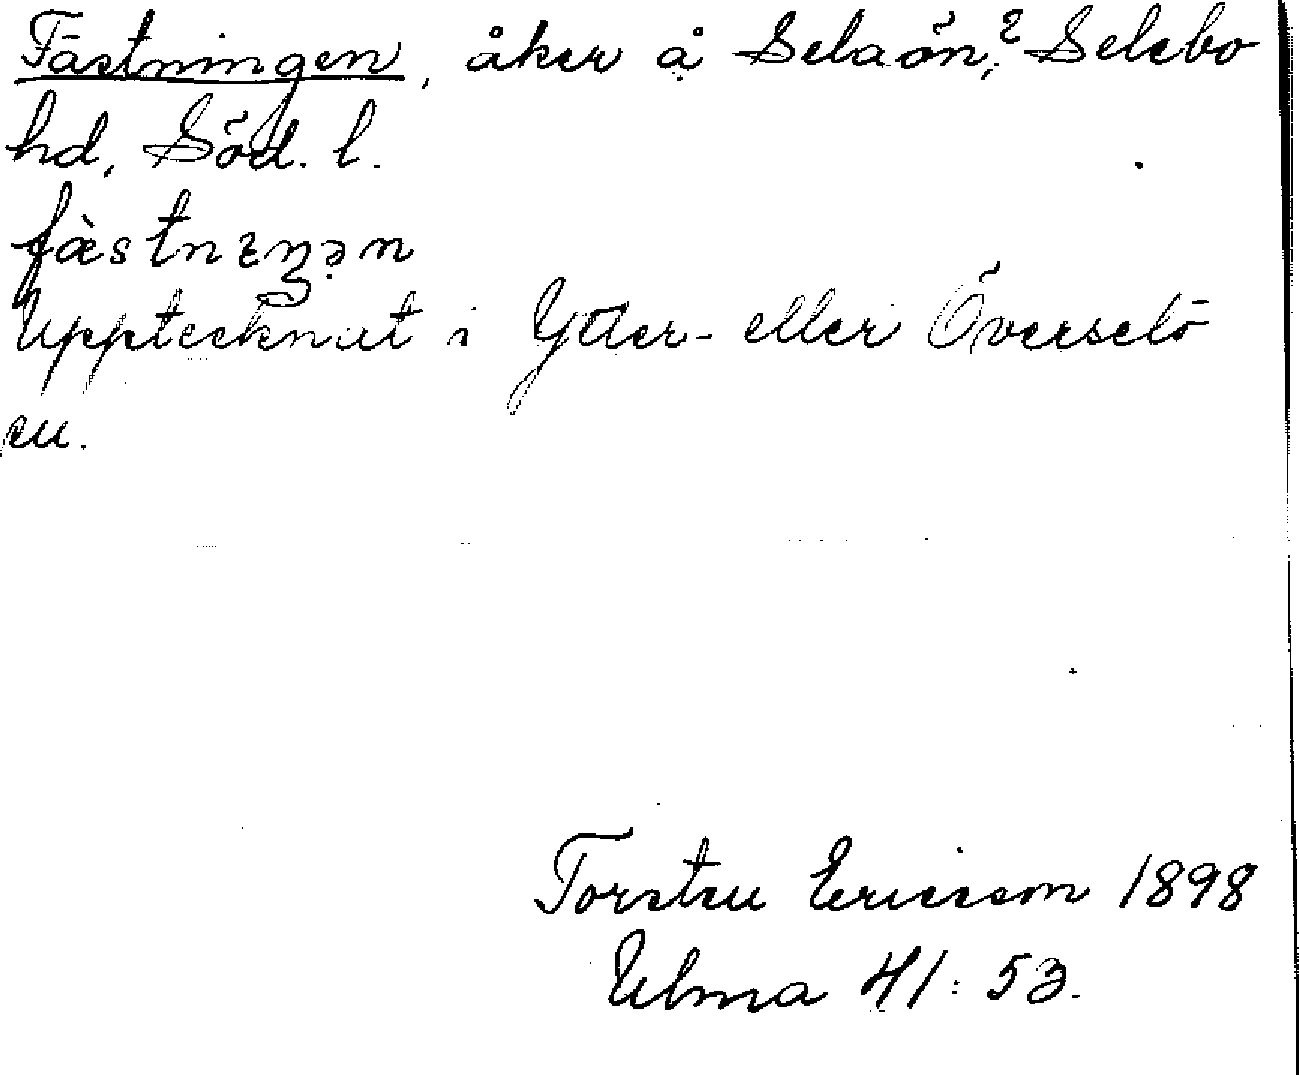 Fästningen, åker å Selaön,? Selebo
hd, Söd. l.
fæ̀stnɪŋən
Upptecknat i Ytter- eller Överselö
sn.
Torsten Ericsson 1898
Ulma 41:53.